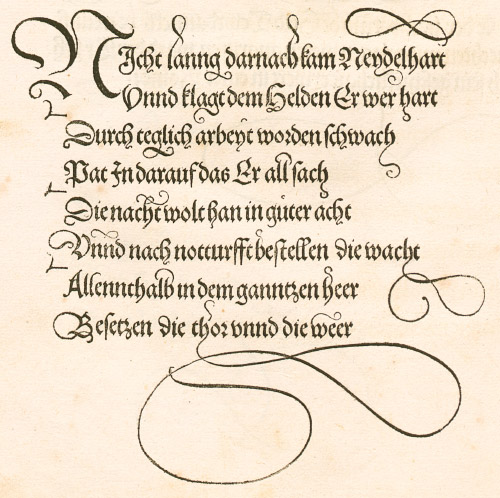 Nicht lanng darnach kam Neydelhart
Vnnd klagt dem Helden Er wer hart
Durch teglich arbeyt worden schwach
Pat In darauf das Er all sach
Die nacht wolt han in güter acht
Vnnd nach notturfft bestellen die wacht
Allennthalb in dem ganntzen heer
Besetzen die thor vnnd die weer